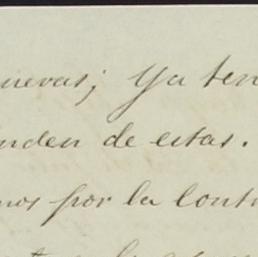 nuevas; Ya ten
nden de estas.
nos por la contr